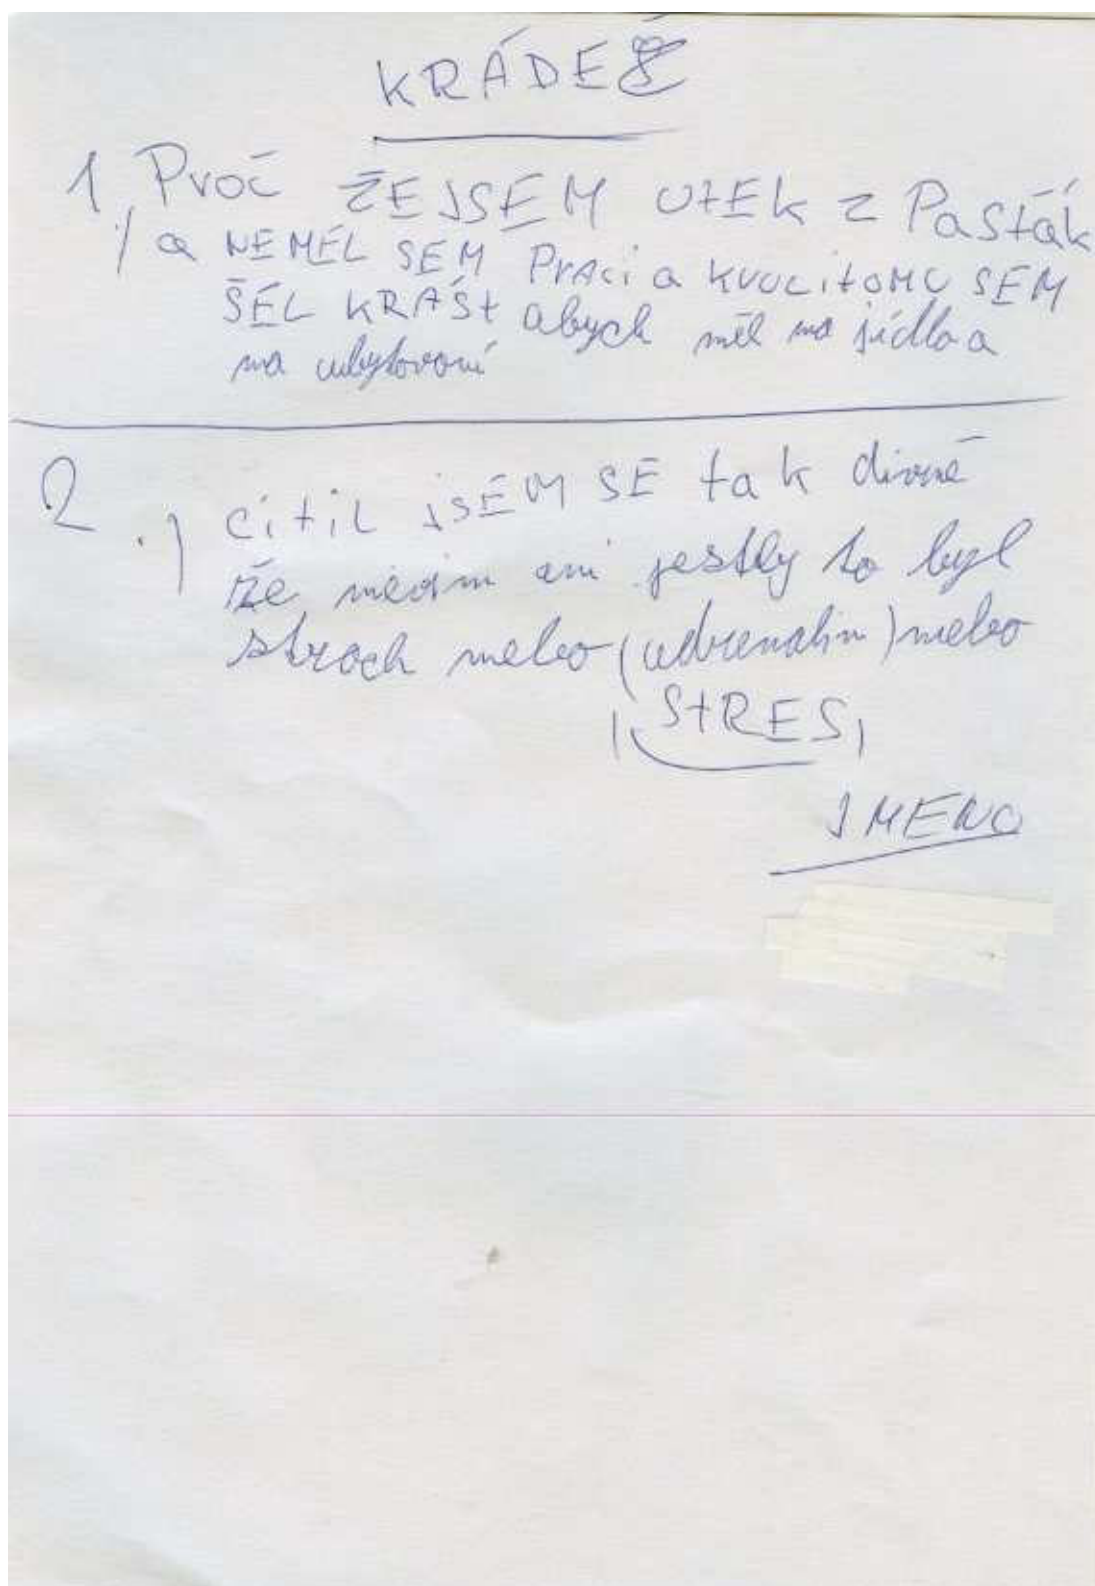 KRÁDEŽ
1, Proč ŽEJSEM UtEk z Pasťák
/ a NEMĚL SEM PRACi a kvůlitoMU SEM
ŠÉL KRÁSt abych měl na jídlo a
na ubytovaní
2 .) cítil jsEM SE tak divně
že nevim ani jestly to byl
strach nebo (adrenalin) nebo
StRES,
JMENO